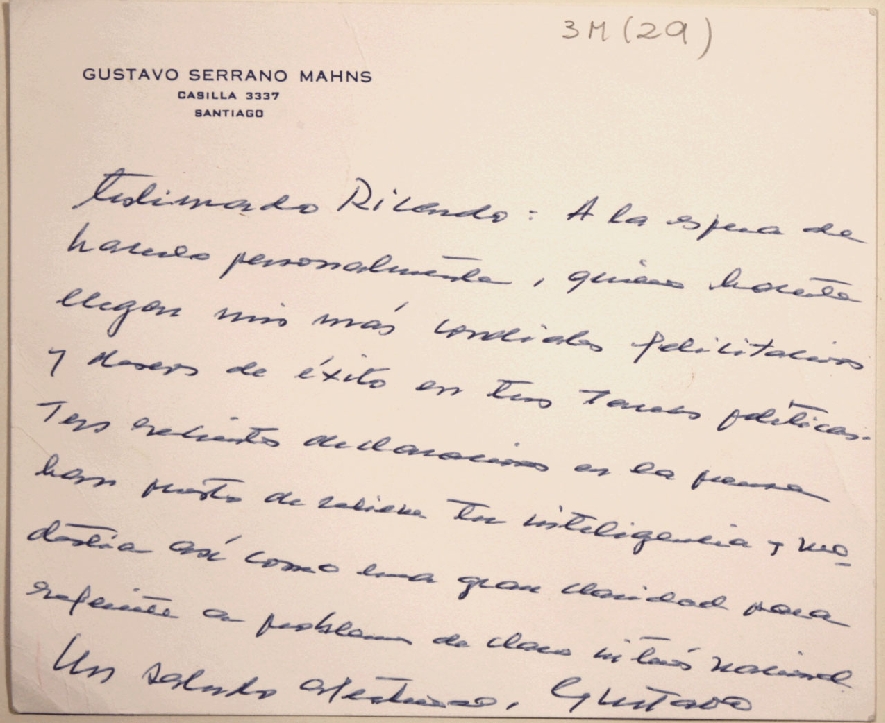 3M (29)
GUSTAVO SERRANO MAHNS
CASILLA 3337
SANTIAGO
Estimado Ricardo: A la espera de
hacerlo personalmente, quiero hacerte
llegar mis más cordiales felicitaciones
y deseos de éxito en tus tareas políticas.
Tus recientes declaraciones en la prensa
han puesto de relieve tu inteligencia y mo-
destia así como una gran claridad para
referirte a problemas de claro interés nacional.
Un saludo afectuoso, Gustavo